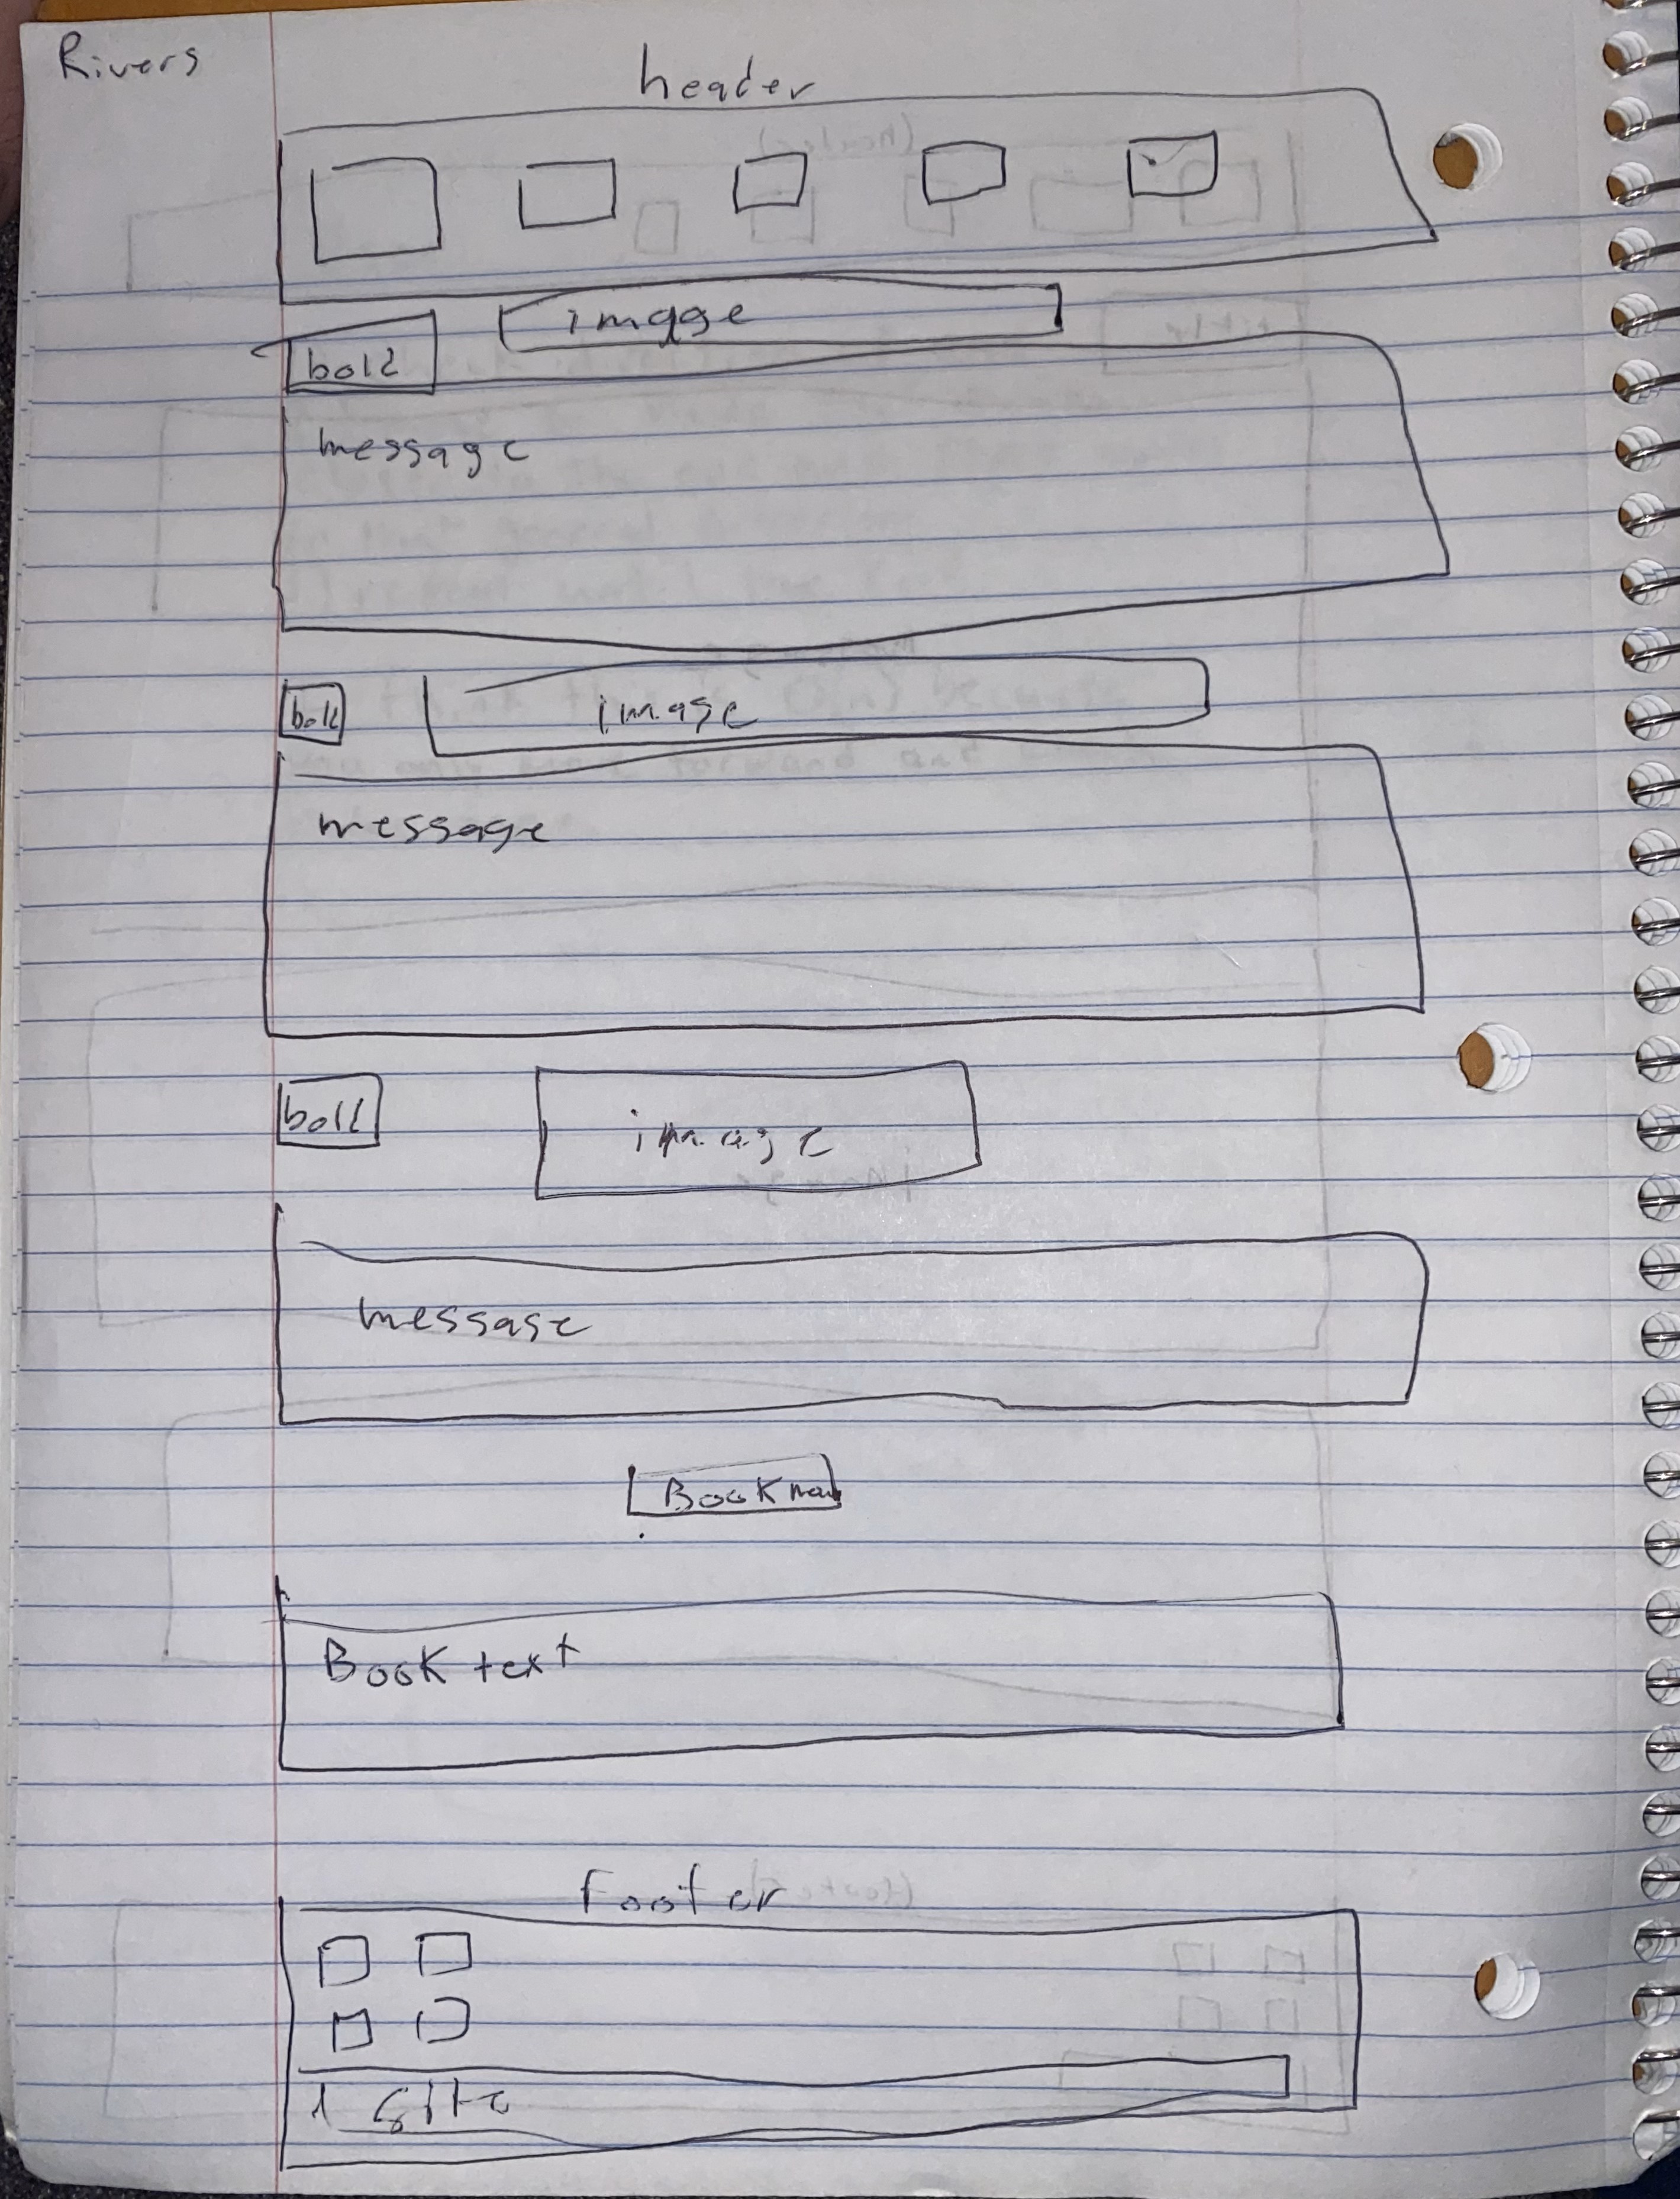 Rivers
header
image
bold
message
bold
image
message
bold
image
message
Book now
Book text
Footer
1 site